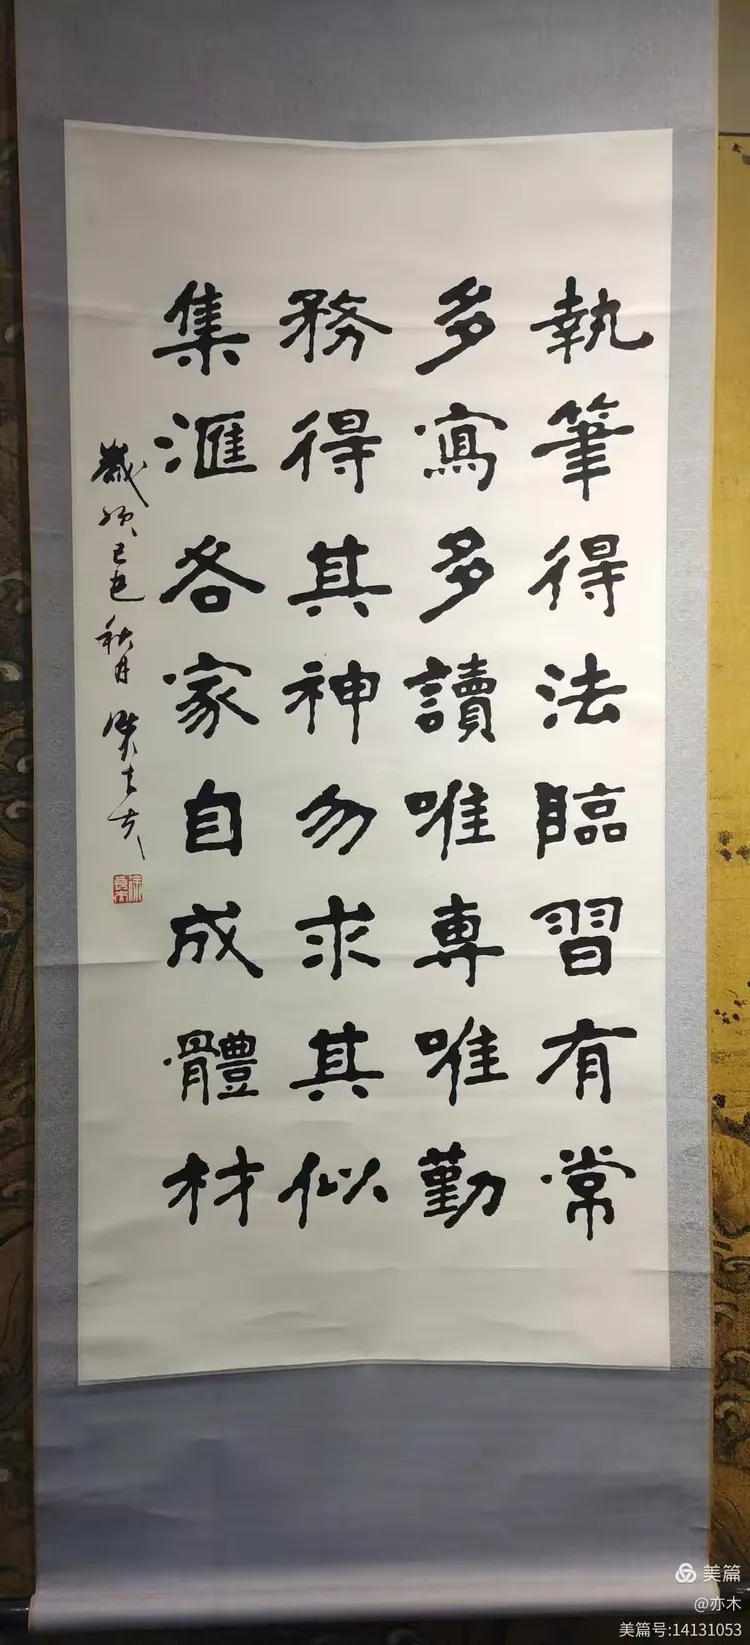 執筆得法臨習有常
多寫多讀唯專唯勤
務得其神勿求其似
集滙各家自成體材
歲次己巳秋月
美篇
@亦木
美篇号:14131053